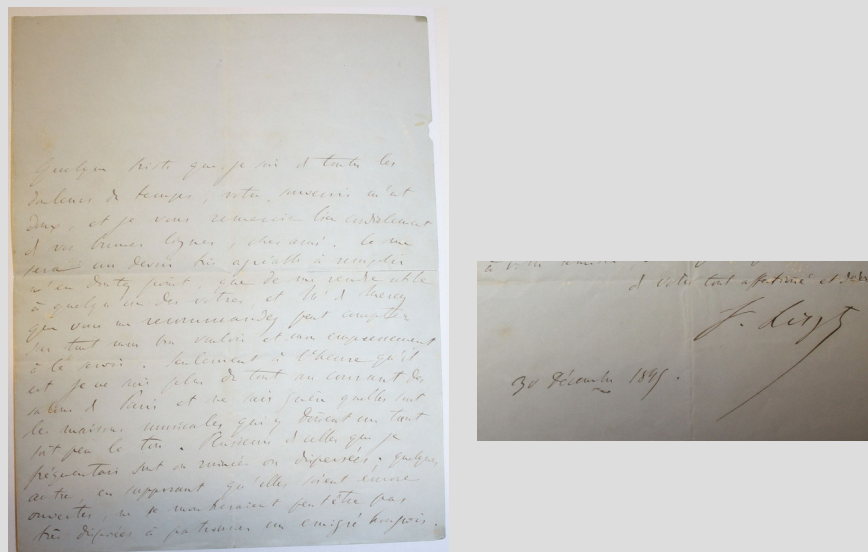 Quelque triste que je sois de toutes les
douleurs du temps, votre souvenir m'est
doux, et je vous remercie bien cordialement
de vos bonnes lignes, cher ami. Ce me
sera un devoir très agréable à remplir
n'en doutez point, que de me rendre utile
à quelqu'un des vôtres, et Mr de
que vous me recommandez peut compter
sur tout mon bon vouloir et mon empressement
à le servir. Seulement à l'heure qu'il
est je ne suis plus du tout au courant des
salons de Paris et ne sais guère quelles sont
les maisons musicales qui y donnent un tant
soit peu le ton. Plusieurs de celles que je
fréquentais sont ou ruinées ou dispersées; quelques
autres, en supposant qu'elles soient encore
ouvertes, ne se montreraient peut être pas
très disposées à patronner un émigré hongrois.
à votre
et votre tout affectionné et
F. Liszt
30 Décembre